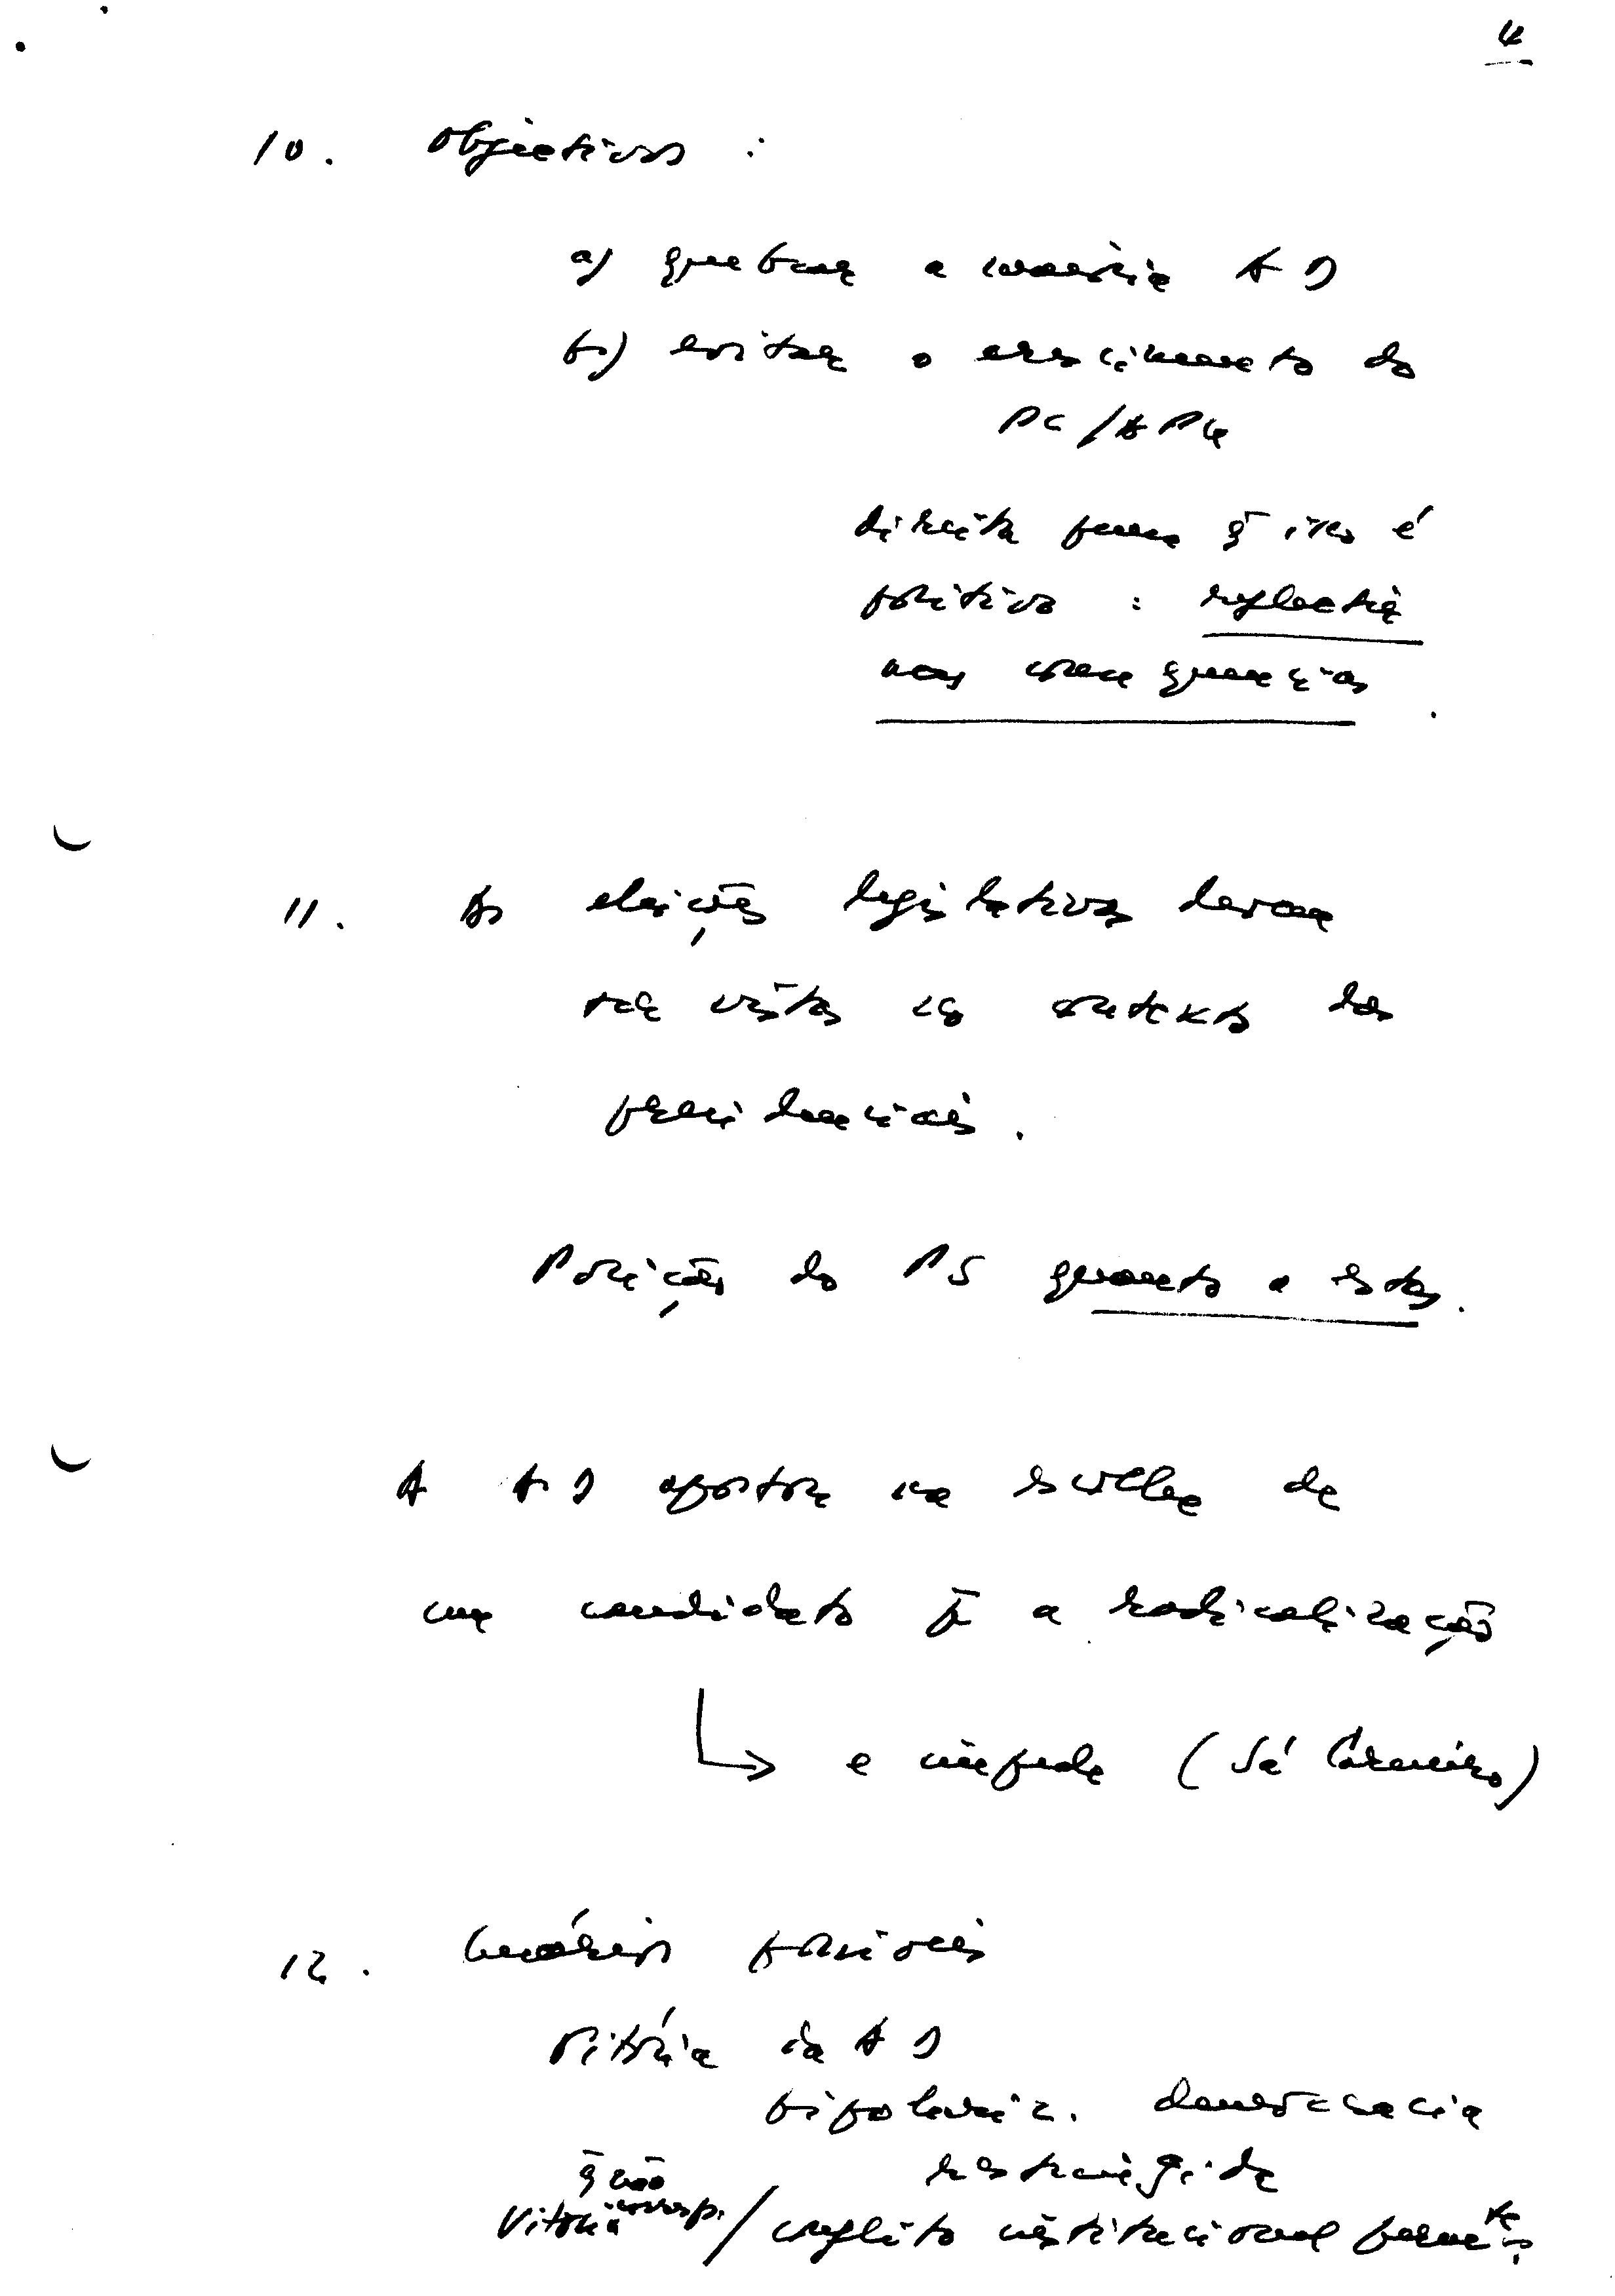 4
10. Objectivos :
a) quebrar a maioria AD
b) evitar o crescimento do
PC/APU
direita pensa q̄ isso é
positivo : reflectir
nas consequências.
11. As eleições legislativas devem
ser vistas no contexto das
presidenciais.
Posição do PS quanto a estas.
A AD aposta na escolha de
um candidato p̄ a radicalização
e (Sá Carneiro)
12. Cenários possíveis
Vitória da AD
bipolariz. democracia
restringida
q̄ não
Vitória corresp. / conflito institucional permte